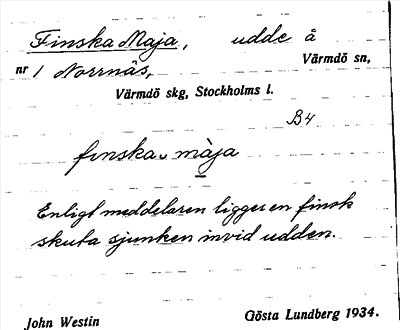 Finska Maja, udde å
nr 1 Norrnäs, Värmdö sn,
Värmdö skg, Stockholms l.
B4
finska màja
Enligt meddelaren ligger en finsk
skuta sjunken invid udden.
John Westin Gösta Lundberg 1934.